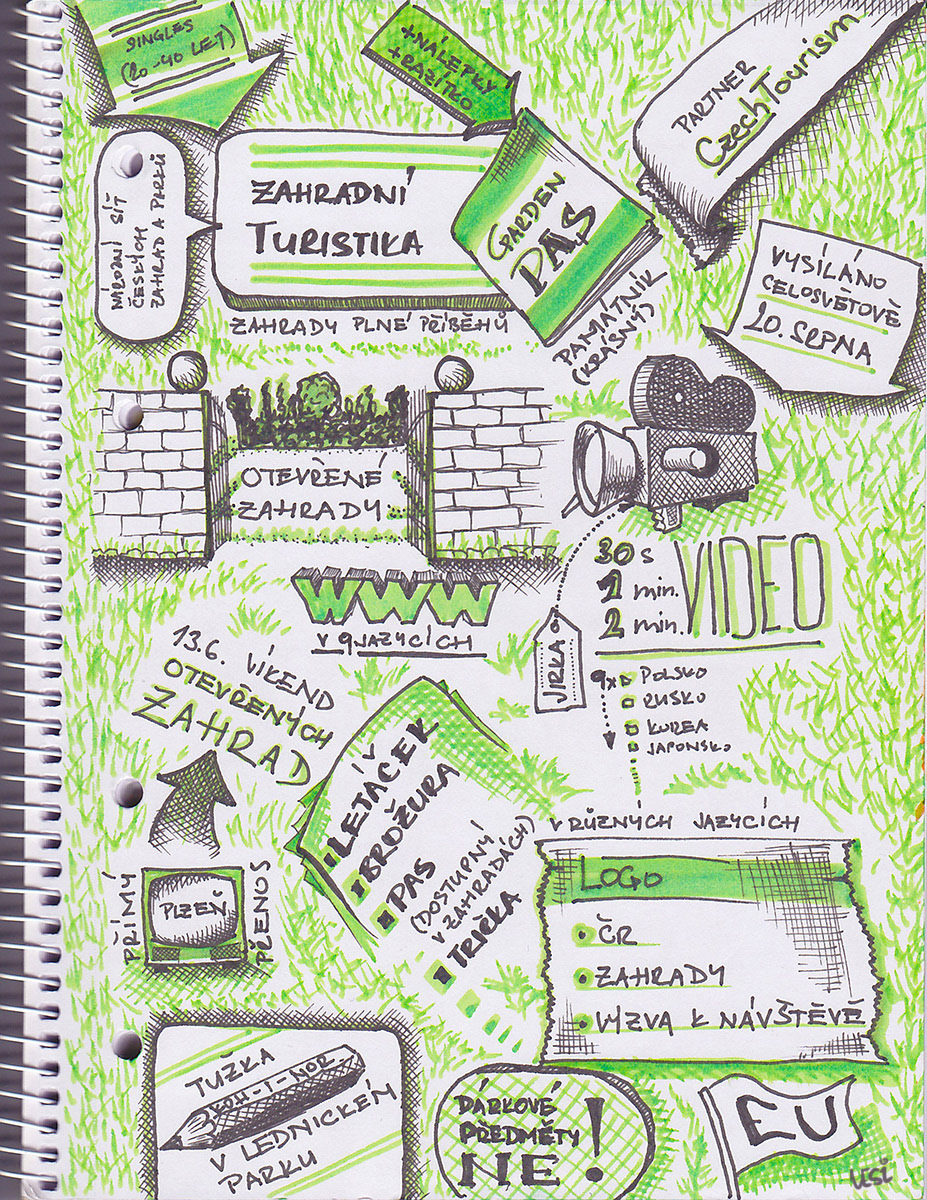 SINGLES
(20-40 LET)
+NÁLEPKY
+RAZÍTKO
PARTNER
CzechTourism
NÁRODNÍ SÍŤ
ČESKÝCH
ZAHRAD A PARKŮ
ZAHRADNÍ
TURISTIKA
GARDEN
PAS
ZAHRADY PLNÉ PŘÍBĚHŮ
PAMÁTNÍK
(KRÁSNÝ)
VYSÍLÁNO
CELOSVĚTOVĚ
20. SRPNA
OTEVŘENÉ
ZAHRADY
WWW
V 9 JAZYCÍCH
30 s
1 min.
2 min.
VIDEO
JIRKA
9x
POLSKO
RUSKO
KOREA
JAPONSKO
V RŮZNÝCH JAZYCÍCH
13.6. VÍKEND
OTEVŘENÝCH
ZAHRAD
LETÁČEK
BROŽURA
PAS
(DOSTUPNÝ
V ZAHRADÁCH)
TRIČKA
PŘÍMÝ
PLZEŇ
PŘENOS
LOGO
ČR
ZAHRADY
VÝZVA K NÁVŠTĚVĚ
TUŽKA
KOH-I-NOR
V LEDNICKÉM
PARKU
DÁRKOVÉ
PŘEDMĚTY
NE!
EU